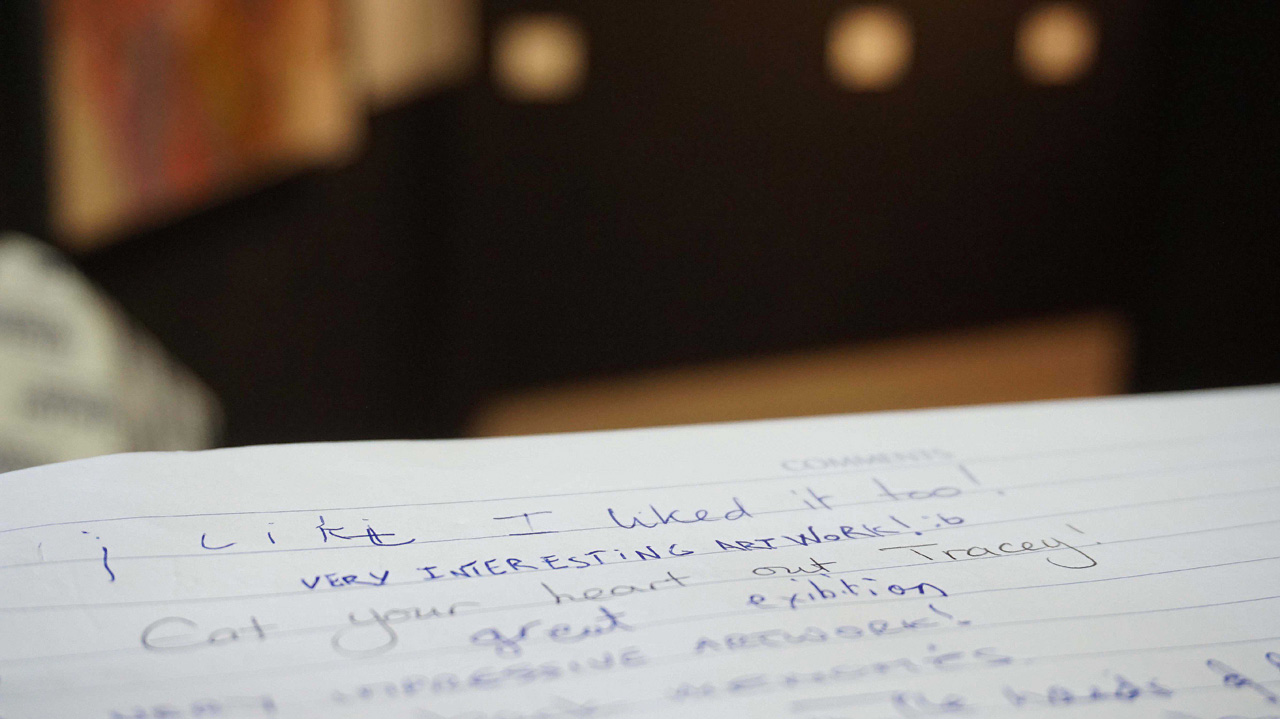 COMMENTS
i Like it I liked it too!
VERY INTERESTING ARTWORK! :b
Eat your heart out Tracey!
great exibition
VERY IMPRESSIVE ARTWORK!
MEMORIES
The hands of